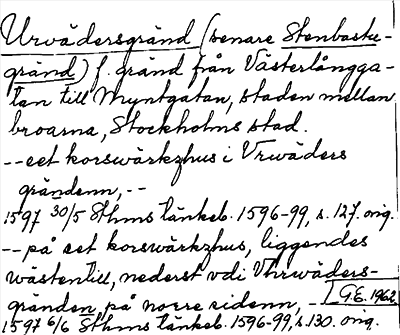 Urvädersgränd (senare Stenbastu-
gränd) f. gränd från Västerlångga-
tan till Myntgatan, staden mellan
broarna, Stockholms stad.
-- eet korswärkzhus i Vrwäders
grändenn, --
1597 30/5 Sthms tänkeb. 1596-99, s. 127. orig.
-- på eet korswärkzhus, liggendes
wästentill, nederst vdi Vhrwäders-
gränden på norre sidenn, --
1597 6/6 Sthms tänkeb. 1596-99, s 130. orig.
G.E. 1962